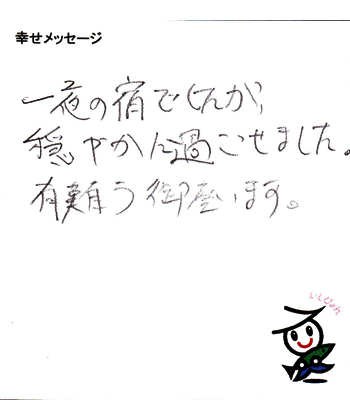 幸せメッセージ
一夜の宿でしたが、
穏やかに過ごせました。
有難う御座います。